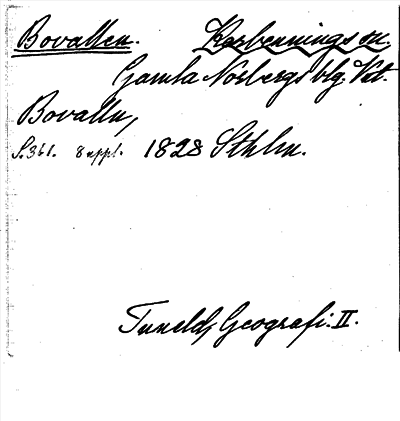 Bovallen. Karbennings sn.
Gamla Norbergs blg. Vstl.
Bovallen,
S. 361. 8 uppl. 1828 Sthlm.
Tuneld, Geografi. II.